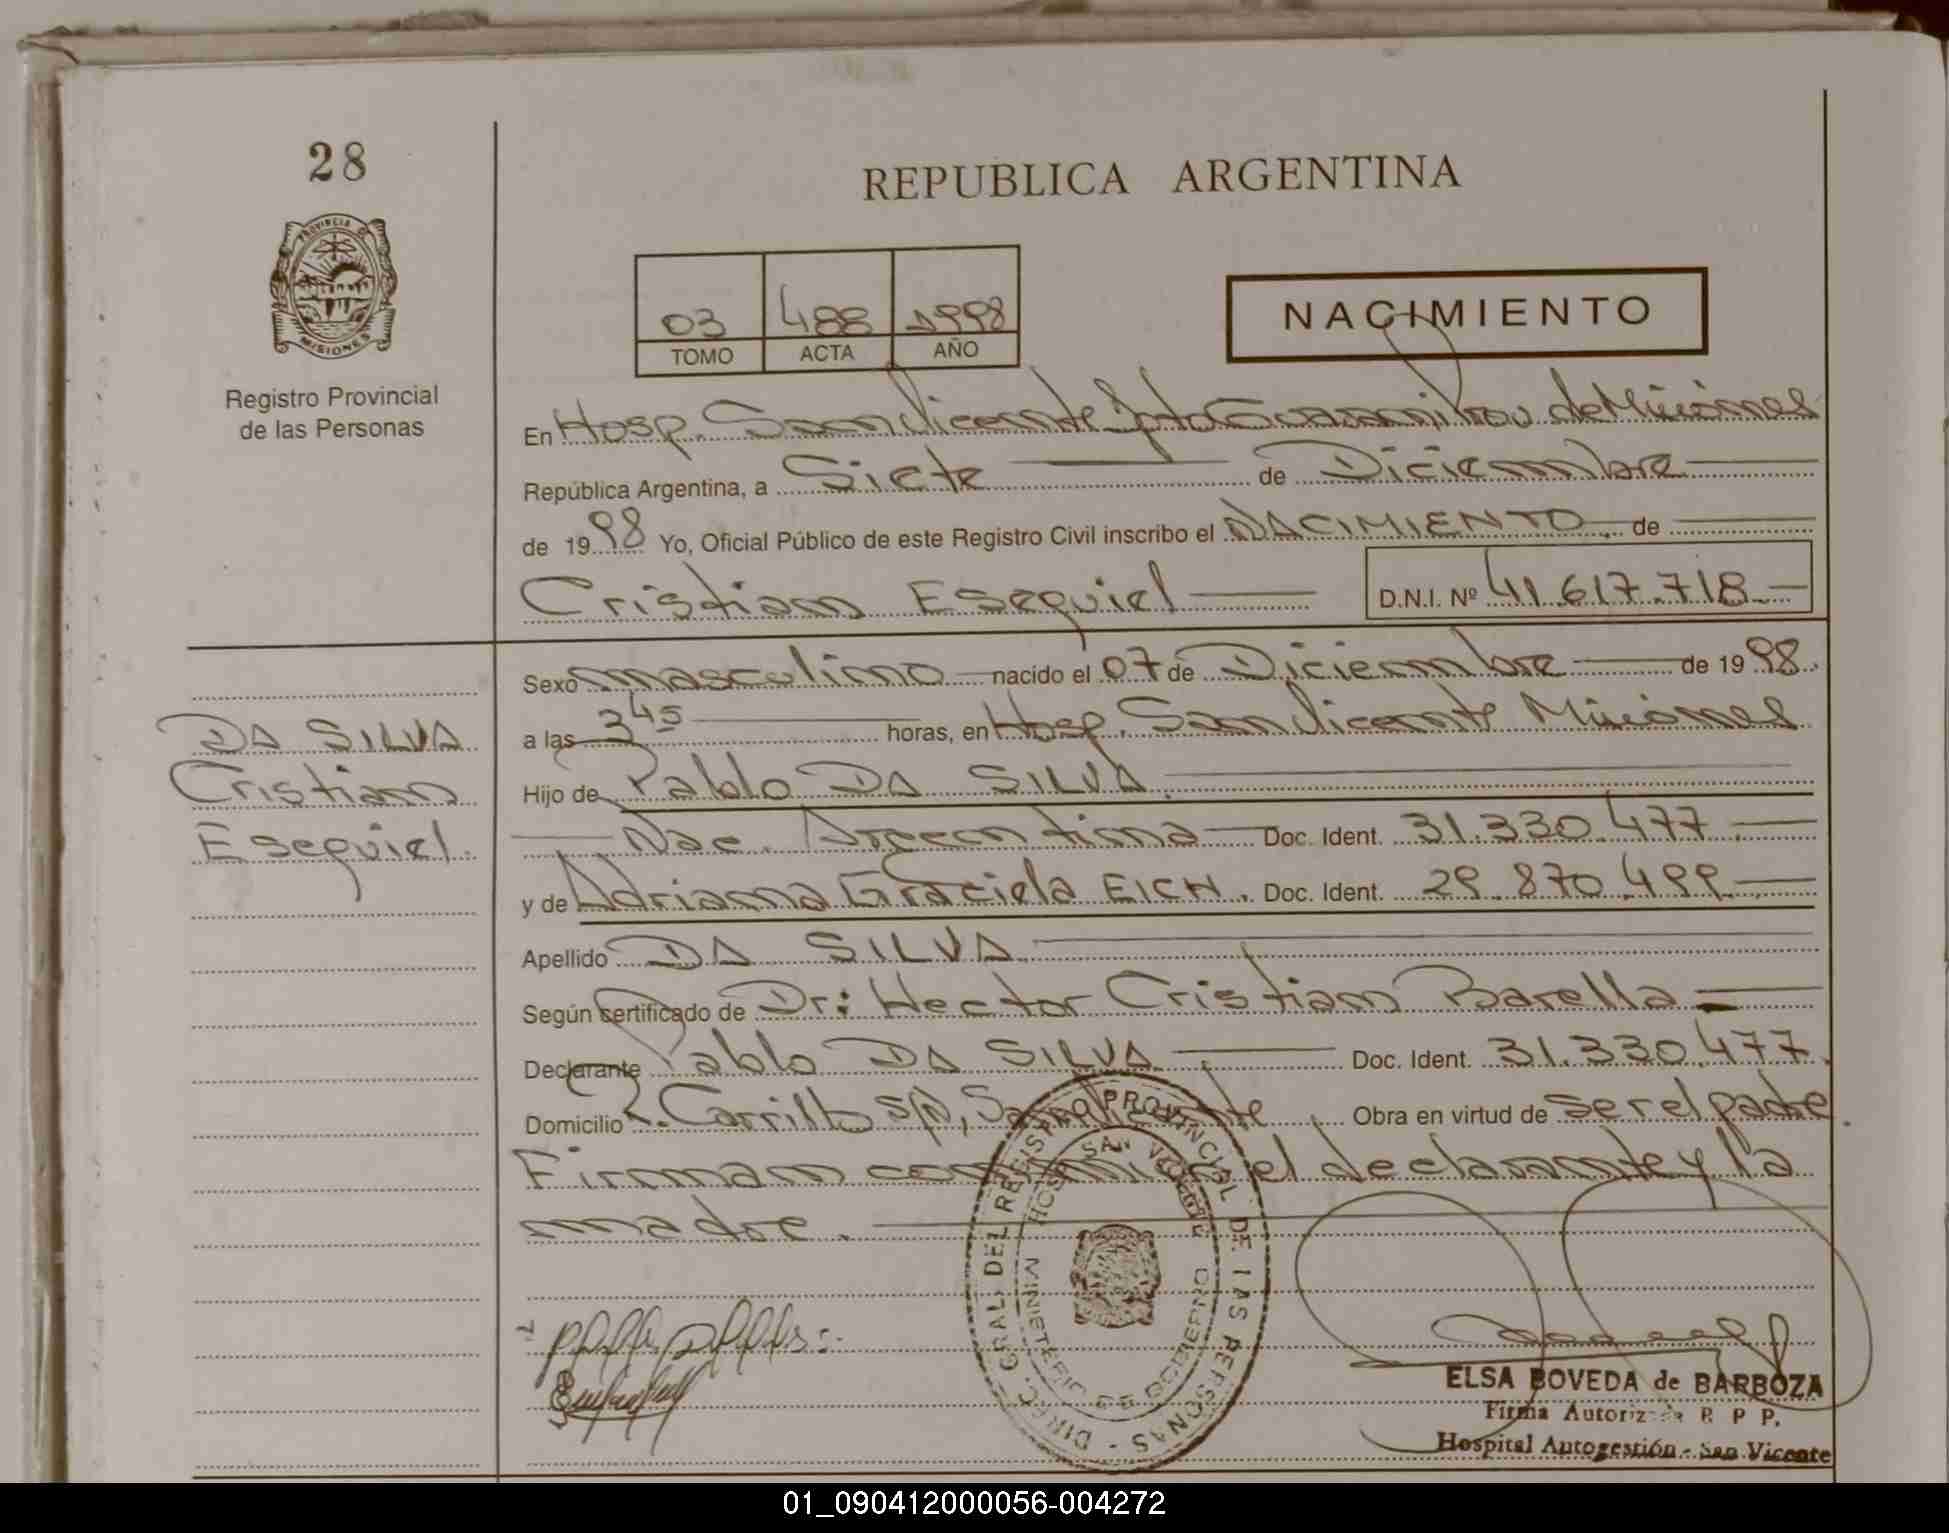 28
REPUBLICA ARGENTINA
PROVINCIA DE MISIONES
Registro Provincial
de las Personas
03 488 1998
TOMO ACTA AÑO
NACIMIENTO
En Hosp. San Vicente Dpto Guaraní Prov. de Misiones
República Argentina, a Siete de Diciembre
de 1998 Yo, Oficial Público de este Registro Civil inscribo el NACIMIENTO de
Cristian Esequiel D.N.I. Nº 41.617.718
Sexo masculino nacido el 07 de Diciembre de 1998
a las 3 45 horas, en Hosp. San Vicente Misiones
Hijo de Pablo DA SILVA
Nac. Argentina Doc. Ident. 31.330.477
y de Adriana Graciela EICH. Doc. Ident. 29.870.499
Apellido DA SILVA
Según certificado de Dr: Hector Cristian Barella
Declarante Pablo DA SILVA Doc. Ident. 31.330.477
Domicilio R. Carrillo S/N, San Vicente Obra en virtud de ser el padre
Firman conmigo el declarante y la
madre.
DA SILVA
Cristian
Esequiel
DIREC. GRAL. DEL REGISTRO PROVINCIAL DE LAS PERSONAS
HOSP. SAN VICENTE
MINISTERIO DE GOBIERNO
ELSA BOVEDA de BARBOZA
Firma Autorizada R P P.
Hospital Autogestión - San Vicente
01_090412000056-004272